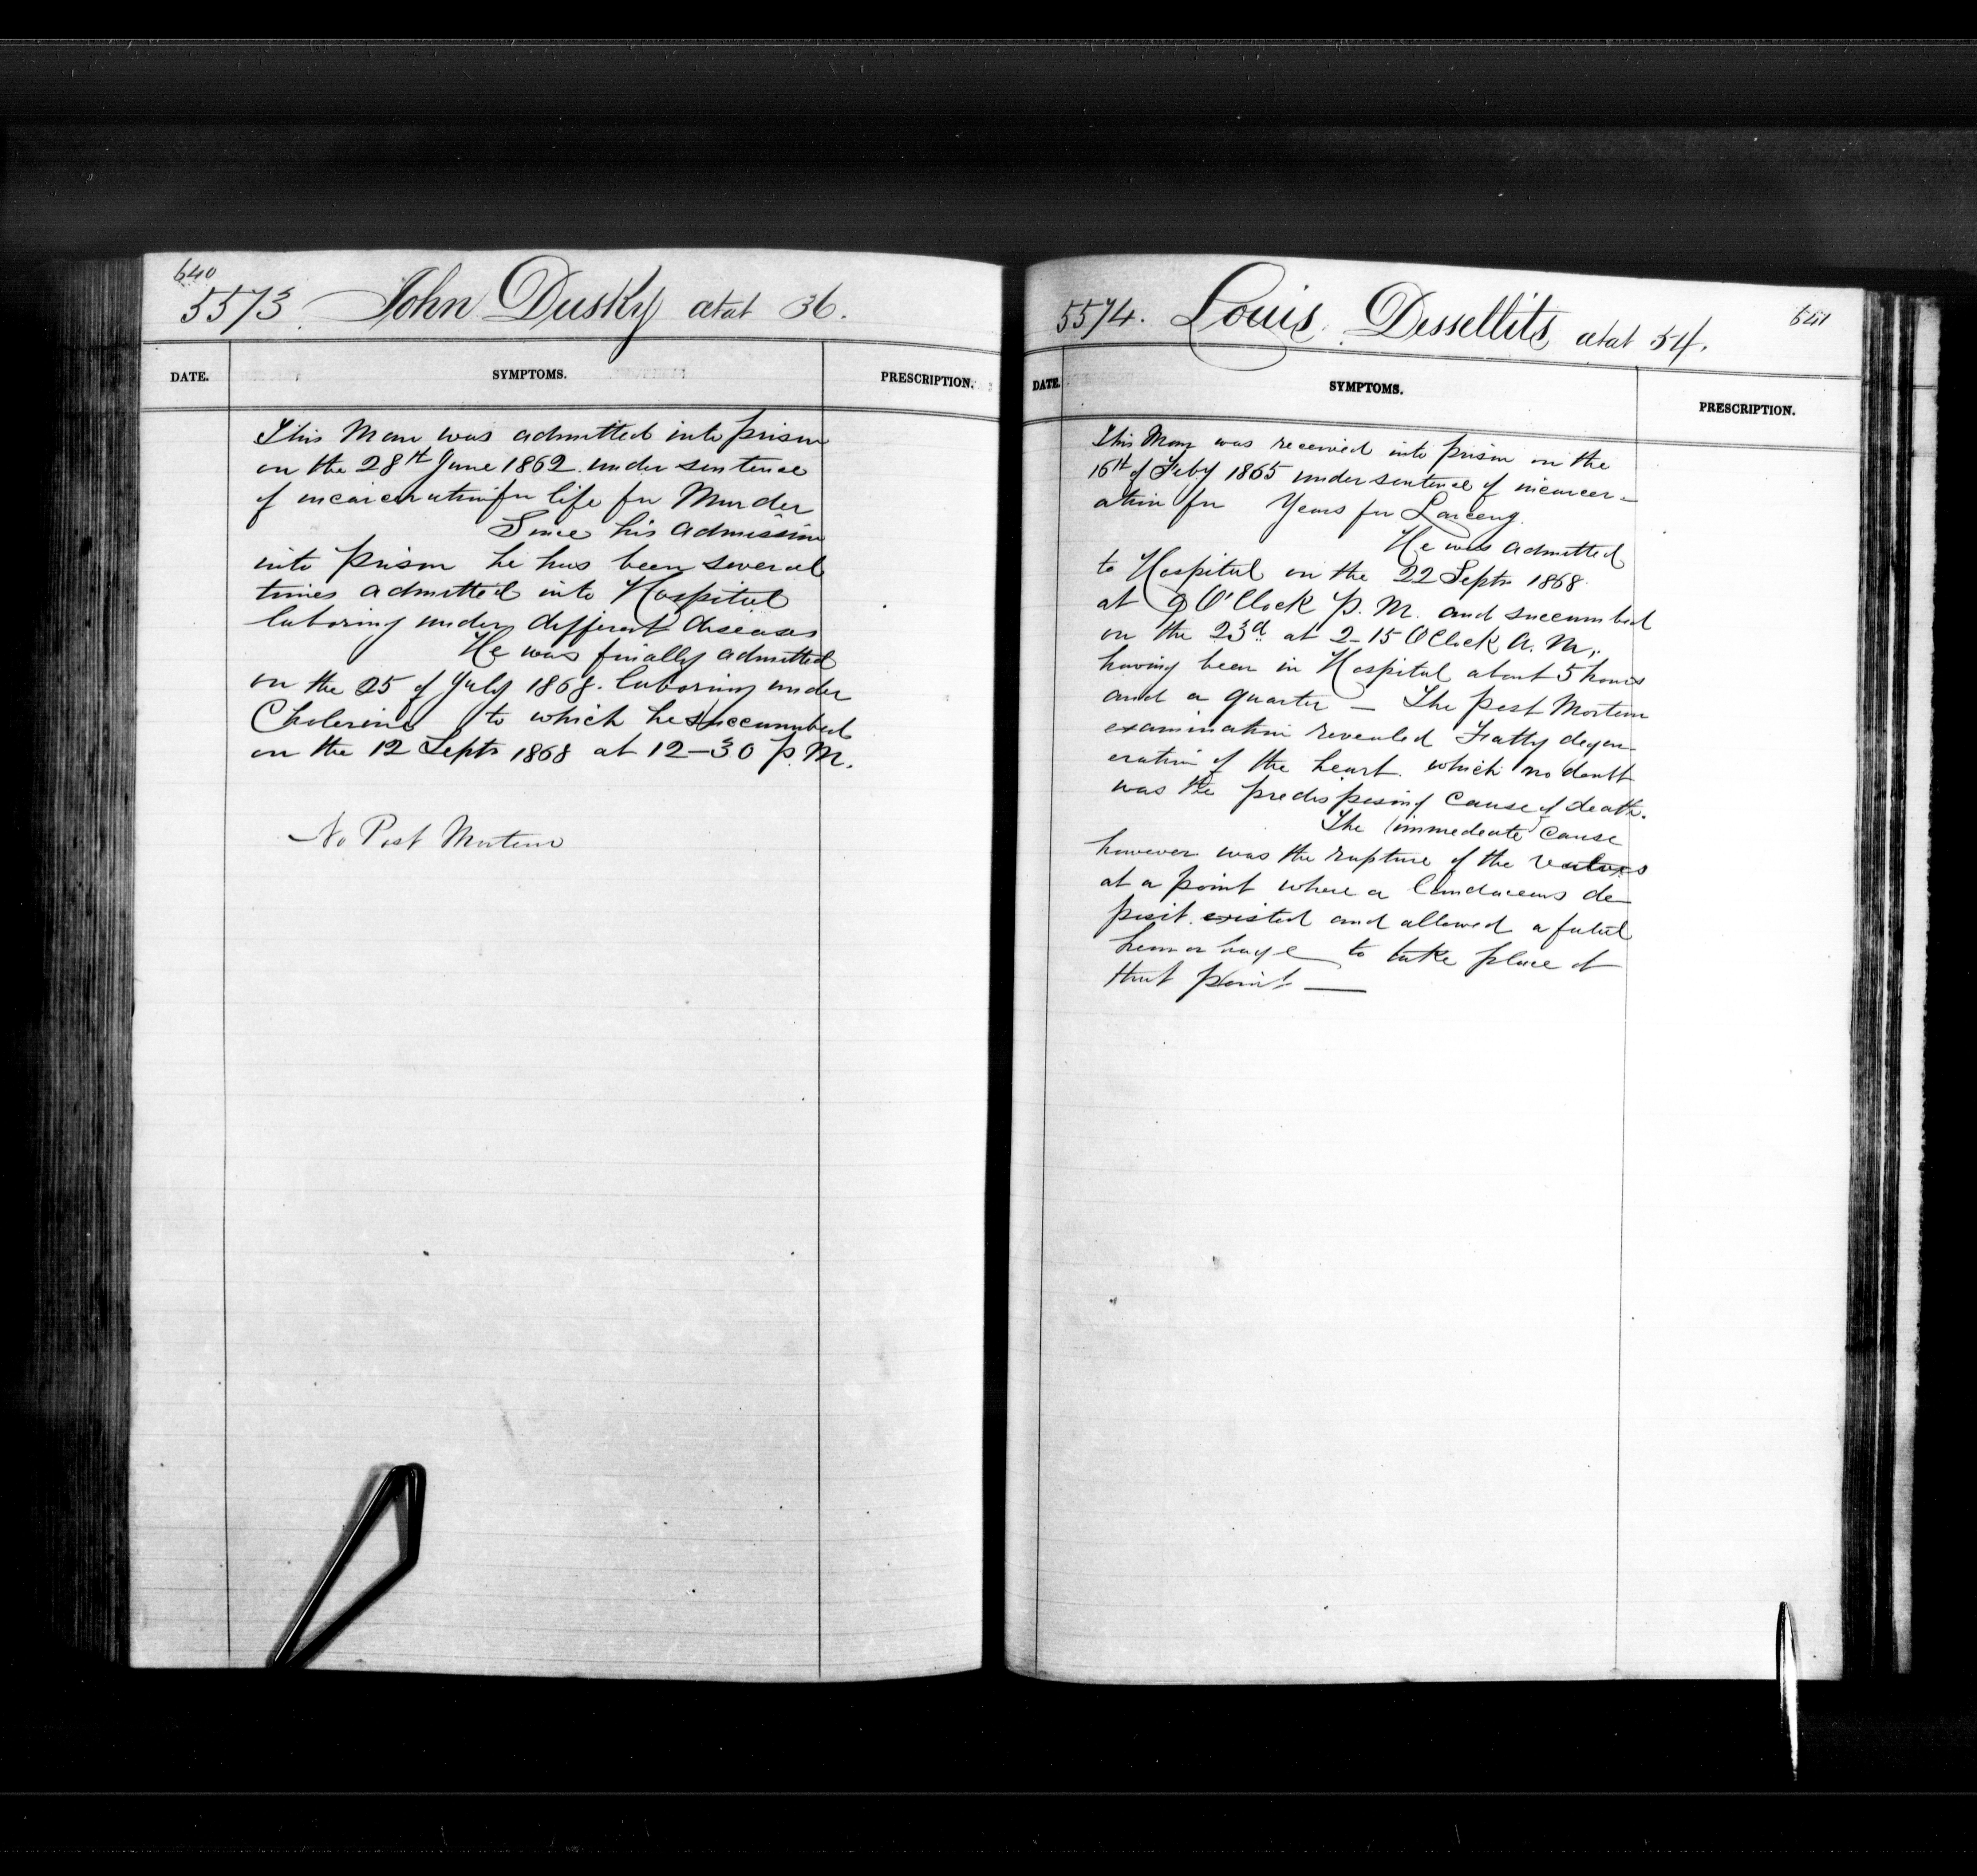 640
5573. John Dusky atat 36.
DATE. SYMPTOMS. PRESCRIPTION.
This Man was admitted into prison
on the 28th June 1862. under sentence
of incarceration for life for Murder
Since his admission
into prison he has been several
times admitted into Hospital
laboring under different diseases
He was finally admitted
on the 25 of July 1868. laboring under
Cholerine to which he succumbed
on the 12 Septr 1868 at 12-30 P.M.
No Post Mortem
641
5574. Louis. Dessellits atat 54.
DATE. SYMPTOMS. PRESCRIPTION.
This Man was received into prison on the
16th of Feby 1865 under sentence of incarcer-
ation for Years for Larceny.
He was admitted
to Hospital on the 22 Septr 1868.
at 9 O'Clock P.M. and succumbed
on the 23d at 2-15 OClock A.M.,
having been in Hospital about 5 hours
and a quarter — The Post Mortem
examination revealed Fatty degen-
eration of the heart. which no doubt
was the predisposing cause of death.
The immedeate cause
however was the rupture of the
at a point where a de-
posit existed and allowed a fatal
hemorhage to take place at
that point —